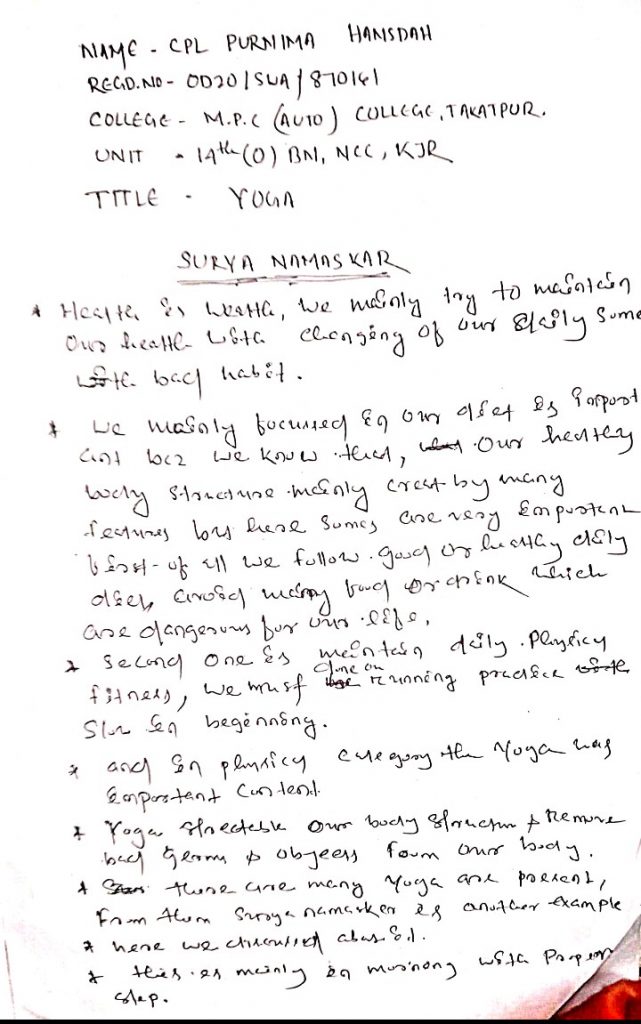 NAME - CPL PURNIMA HANSDAH
REGD.NO - OD20/SWA/870161
COLLEGE - M.P.C (AUTO) COLLEGE, TAKATPUR.
UNIT - 14th (O) BN, NCC, KJR
TITLE - YOGA
SURYA NAMASKAR
* Health is wealth, we mainly try to maintain
our health with changing of our daily some
bad habit.
* we mainly focussed in our diet is import
ant bcz we know that, our healthy
body structure mainly creat by many
features but here somes are very important
first of all we follow good or healthy daily
diet, avoid many food or drink which
are dangerous for our life.
* second one is maintain daily physicy
fitness, we must done on running practice
slow in beginning.
* and in physicy category the Yoga has
important content.
* Yoga our body structur & Remove
bad germs & objects from our body.
* there are many Yoga are present,
From them Surya namasker is another example
* here we discussed about it.
* this is mainly in morning with Proper
step.